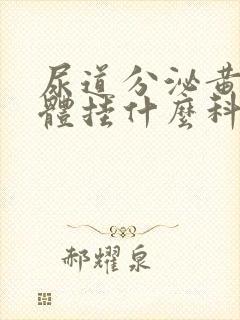 尿道分泌黃
體挂什麼科
郝耀泉